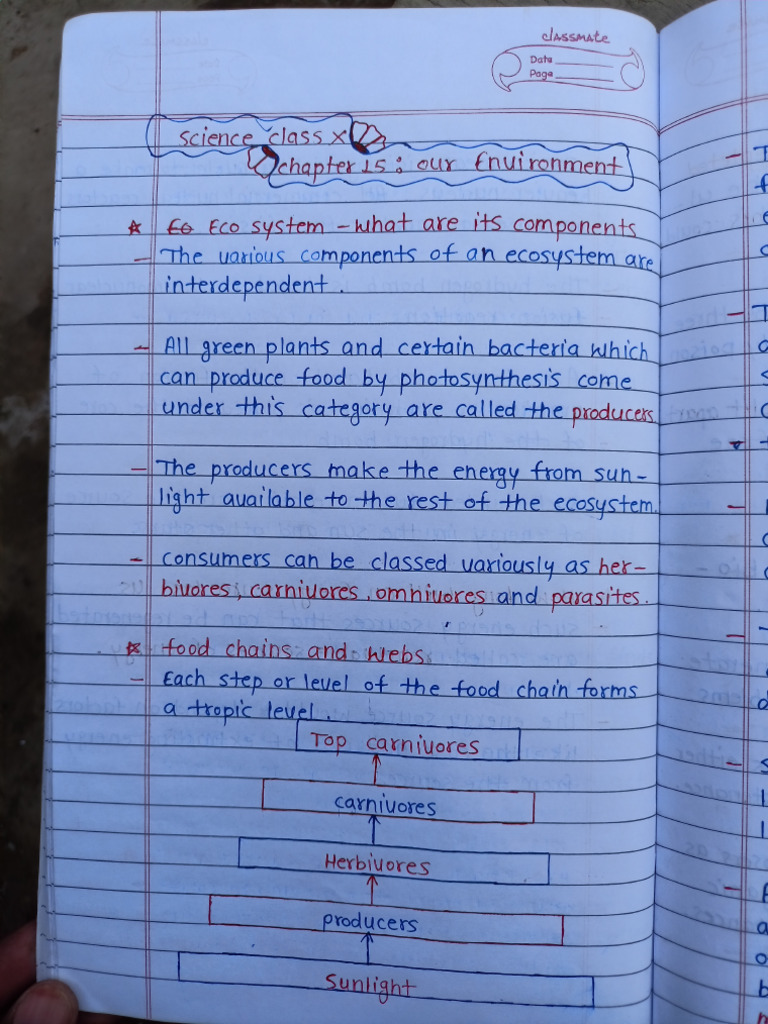 classmate
Date
Page
science class x
chapter 15 : our Environment
Eco Eco system - what are its components
- The various components of an ecosystem are
interdependent .
- All green plants and certain bacteria which
can produce food by photosynthesis come
under this category are called the producers
- The producers make the energy from sun-
light available to the rest of the ecosystem.
- consumers can be classed variously as her-
bivores, carnivores, omnivores and parasites.
food chains and webs.
- Each step or level of the food chain forms
a tropic level.
Top carnivores
carnivores
Herbivores
producers
Sunlight